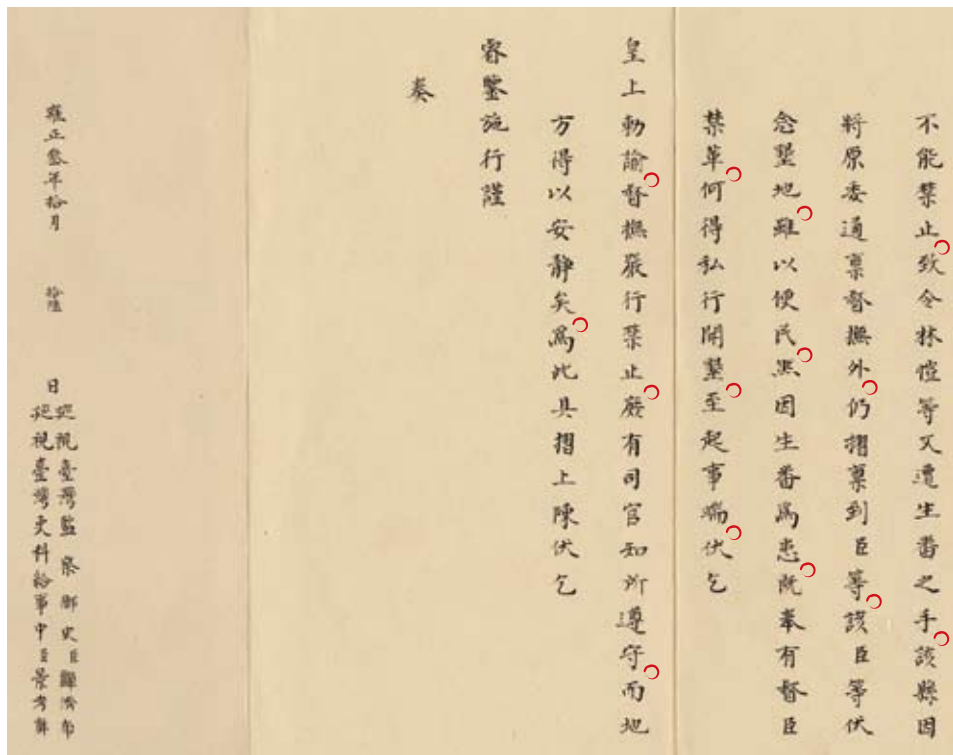 不能禁止致令林愷等又遭生番之手該縣因
將原委通稟督撫外仍摺稟到臣等該臣等伏
念墾地雖以便民然因生番為患既奉有督臣
禁革何得私行開墾至起事端伏乞
皇上勅諭督撫嚴行禁止廢有司官知所遵守而地
方得以安靜矣為此具摺上陳伏乞
睿鑒施行謹
奏
雍正叁年拾月 拾陸 日
巡視臺灣監察御史臣禪濟布
巡視臺灣吏科給事中臣景考祥